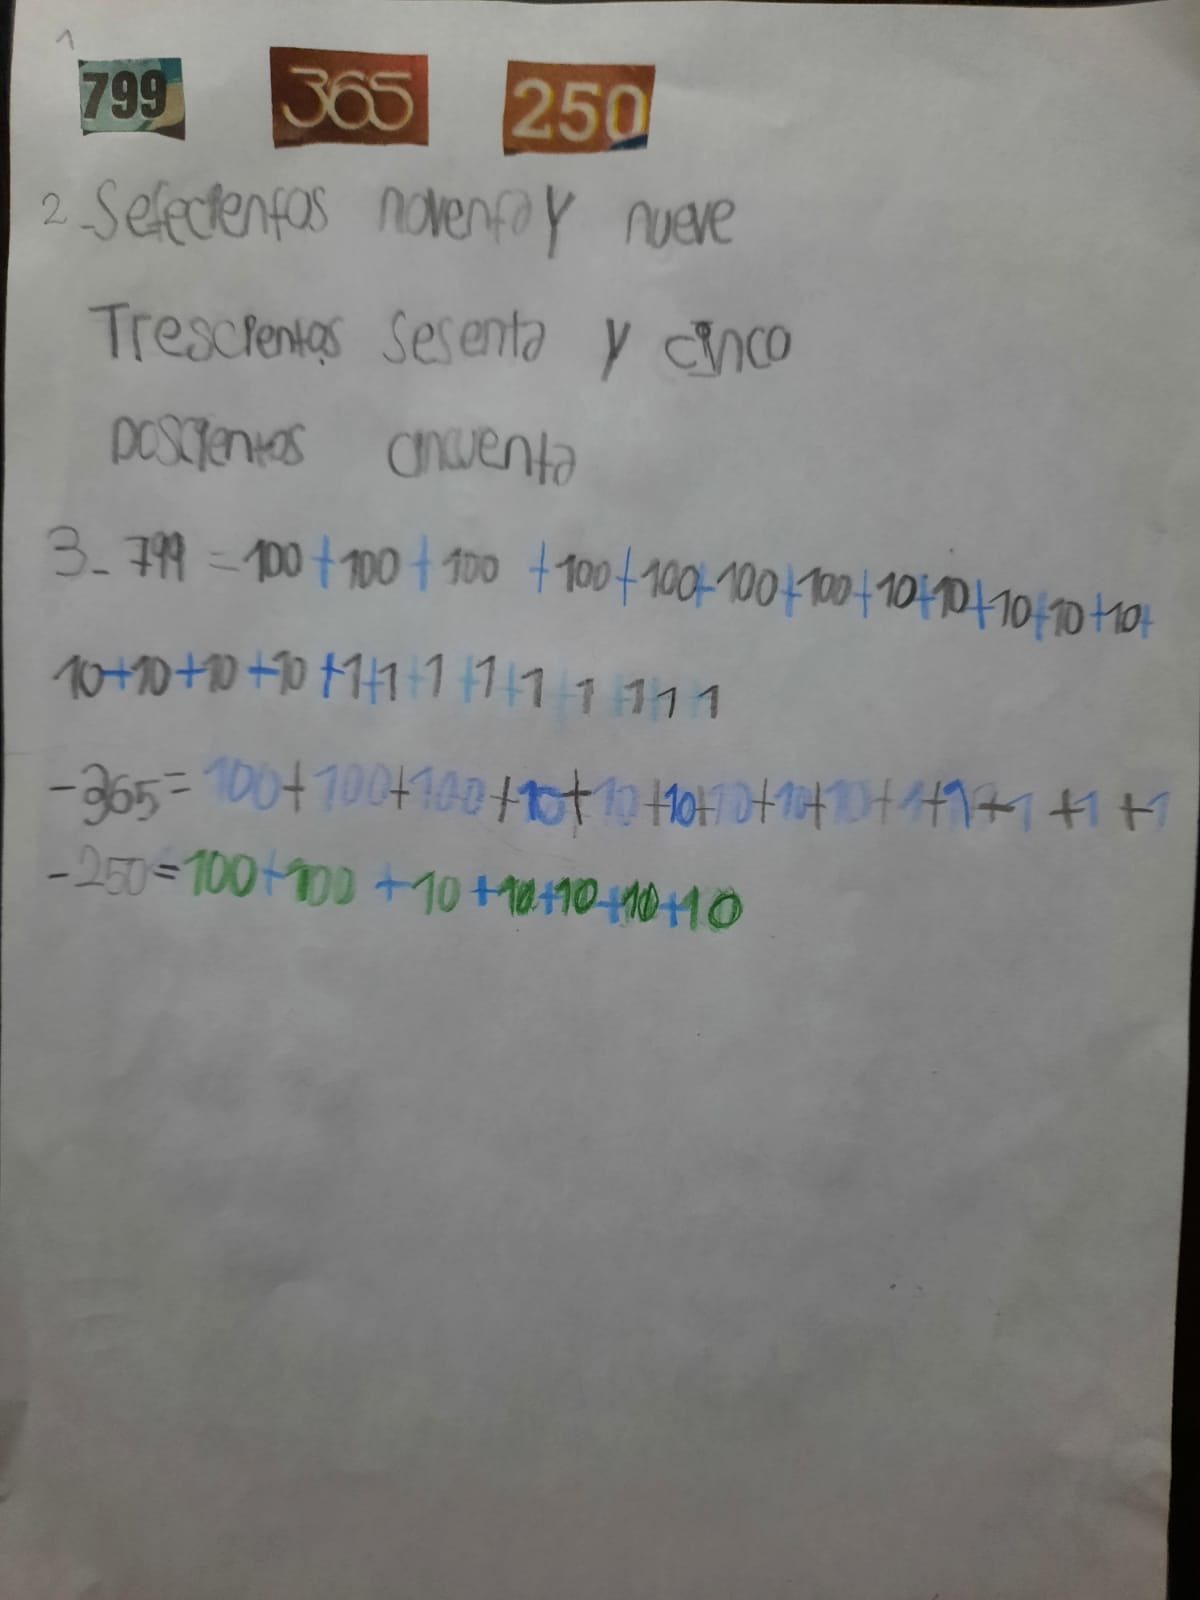 1
799 365 250
2-Setecientos noventa y nueve
Trescientos sesenta y cinco
Doscientos cincuenta
3- 799 = 100 + 100 + 100 + 100 + 100 + 100 + 100 + 10 + 10 + 10 + 10 + 10 +
10 + 10 + 10 + 10 + 1 + 1 + 1 + 1 + 1 + 1 + 1 + 1 + 1
-365 = 100 + 100 + 100 + 10 + 10 + 10 + 10 + 10 + 10 + 1 + 1 + 1 + 1 + 1
-250 = 100 + 100 + 10 + 10 + 10 + 10 + 10